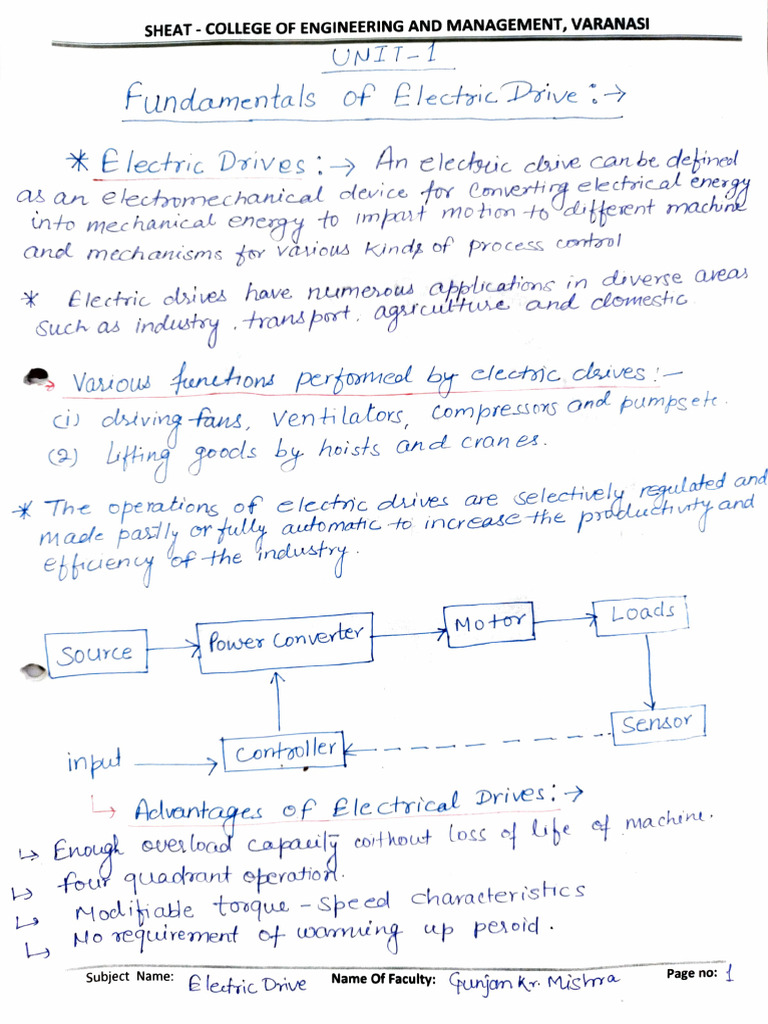 SHEAT - COLLEGE OF ENGINEERING AND MANAGEMENT, VARANASI
UNIT-1
Fundamentals of Electric Drive:→
* Electric Drives:→ An electric drive can be defined
as an electromechanical device for converting electrical energy
into mechanical energy to impart motion to different machine
and mechanisms for various kinds of process control
* Electric drives have numerous applications in diverse areas
such as industry, transport, agriculture and domestic
Various functions performed by electric drives:-
(1) driving fans, ventilators, compressors and pumps etc.
(2) Lifting goods by hoists and cranes.
* The operations of electric drives are selectively regulated and
made partly or fully automatic to increase the productivity and
efficiency of the industry.
Source
Power Converter
Motor
Loads
Sensor
Controller
input
↳ Advantages of Electrical Drives:→
↳ Enough overload capacity without loss of life of machine.
↳ four quadrant operation.
↳ Modifiable torque-speed characteristics
↳ No requirement of warming up peroid.
Subject Name: Electric Drive Name Of Faculty: Gunjan Kr. Mishra Page no: 1